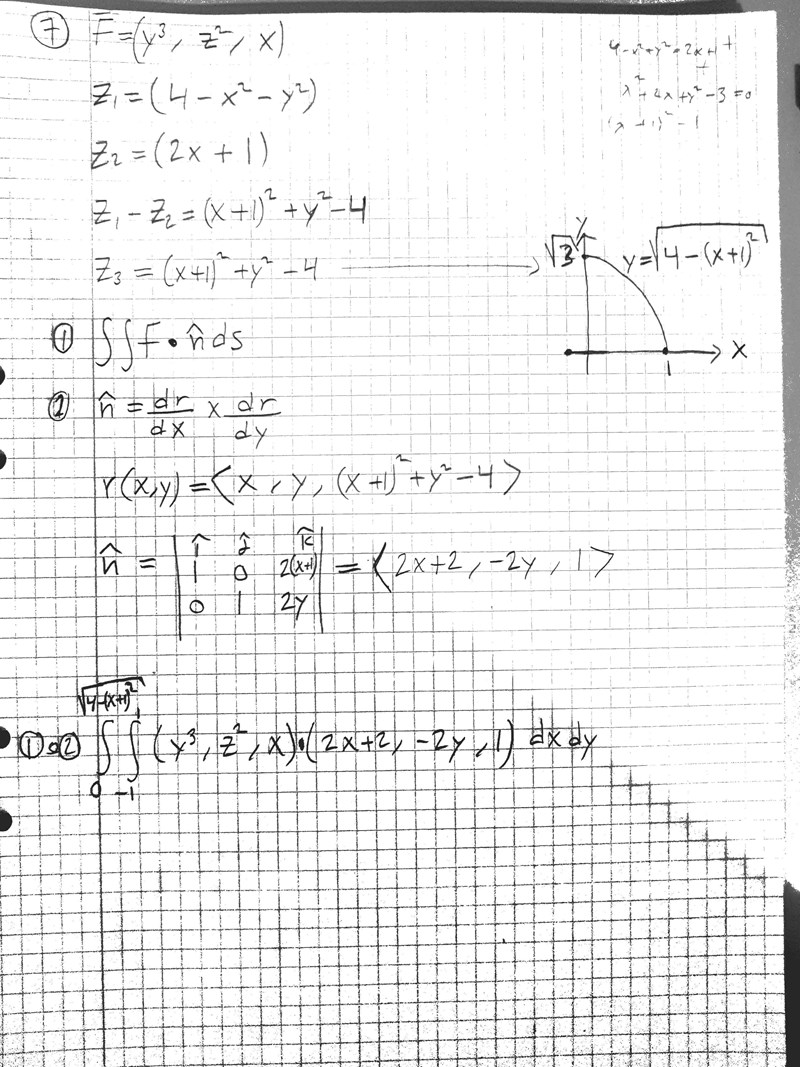 ⑦ F̅ = (y³, z², x)
4 - x² + y² = 2x + 1
+
x² + 2x + y² - 3 = 0
(x + 1)² - 1
z₁ = (4 - x² - y²)
z₂ = (2x + 1)
z₁ - z₂ = (x+1)² + y² - 4
z₃ = (x+1)² + y² - 4 ⟶
y
√3 y = √(4 - (x+1)²)
x
1
① ∫∫ F • n̂ ds
② n̂ = dr/dx × dr/dy
r(x,y) = < x, y, (x+1)² + y² - 4 >
n̂ = | î ĵ k̂ | = < 2x+2, -2y, 1 >
| 1 0 2(x+1) |
| 0 1 2y |
√(4-(x+1)²) 1
①•② ∫ ∫ (y³, z², x)•(2x+2, -2y, 1) dx dy
0 -1